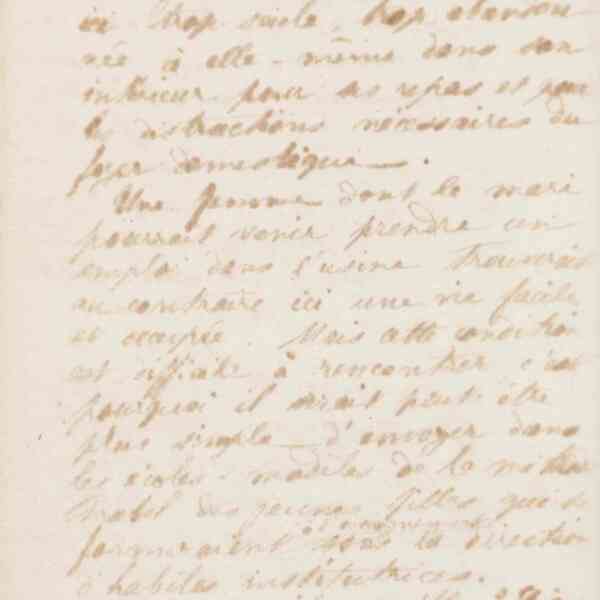 ici trop seule, trop abandon-
née à elle-même dans son
intérieur pour ses repas et pour
les distractions nécessaires du
foyer domestique.
Une femme dont le mari
pourrait venir prendre un
emploi dans l'usine trouverait
au contraire ici une vie facile
et occupée. Mais cette condition
est difficile à rencontrer c'est
pourquoi il serait peut-être
plus simple d'envoyer dans
les écoles-modèles de la
des jeunes filles qui se
formeraient à l'enseignement sous la direction
d'habiles institutrices.